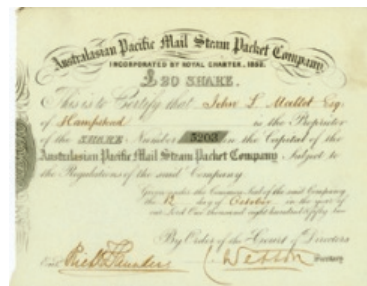 Australasian Pacific Mail Steam Packet Company.
INCORPORATED BY ROYAL CHARTER, 1852.
£20 SHARE.
This is to Certify that John L. Mallet Esq.
of Hampstead is the Proprietor
of the SHARE Number 5203 in the Capital of the
Australasian Pacific Mail Steam Packet Company, Subject to
the Regulations of the said Company
Given under the Common Seal of the said Company,
the 12 day of October in the year of
our Lord One thousand eight hundred fifty two
By Order of the Court of Directors
Saunders
Secretary